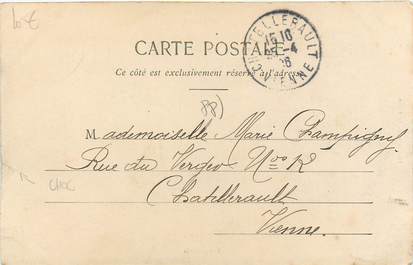 10€
CARTE POSTALE
CHATELLERAULT
15 10
4
VIENNE
Ce côté est exclusivement réservé à l'adresse
Mademoiselle Marie Champigny
Rue du Verger
Chatellerault
Vienne.